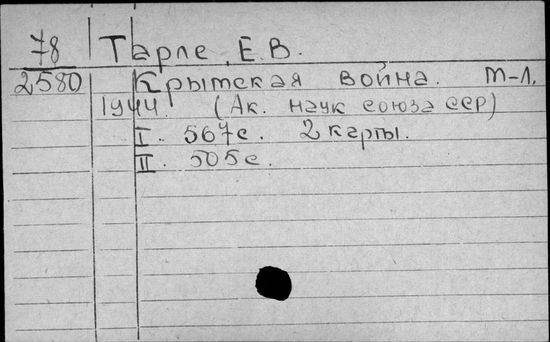 78 Тарле, Е.В.
2580 Крымская война. М-Л.
1944. (Ак. наук союза ССР)
I. 567с. 2 карты.
II. 505с.